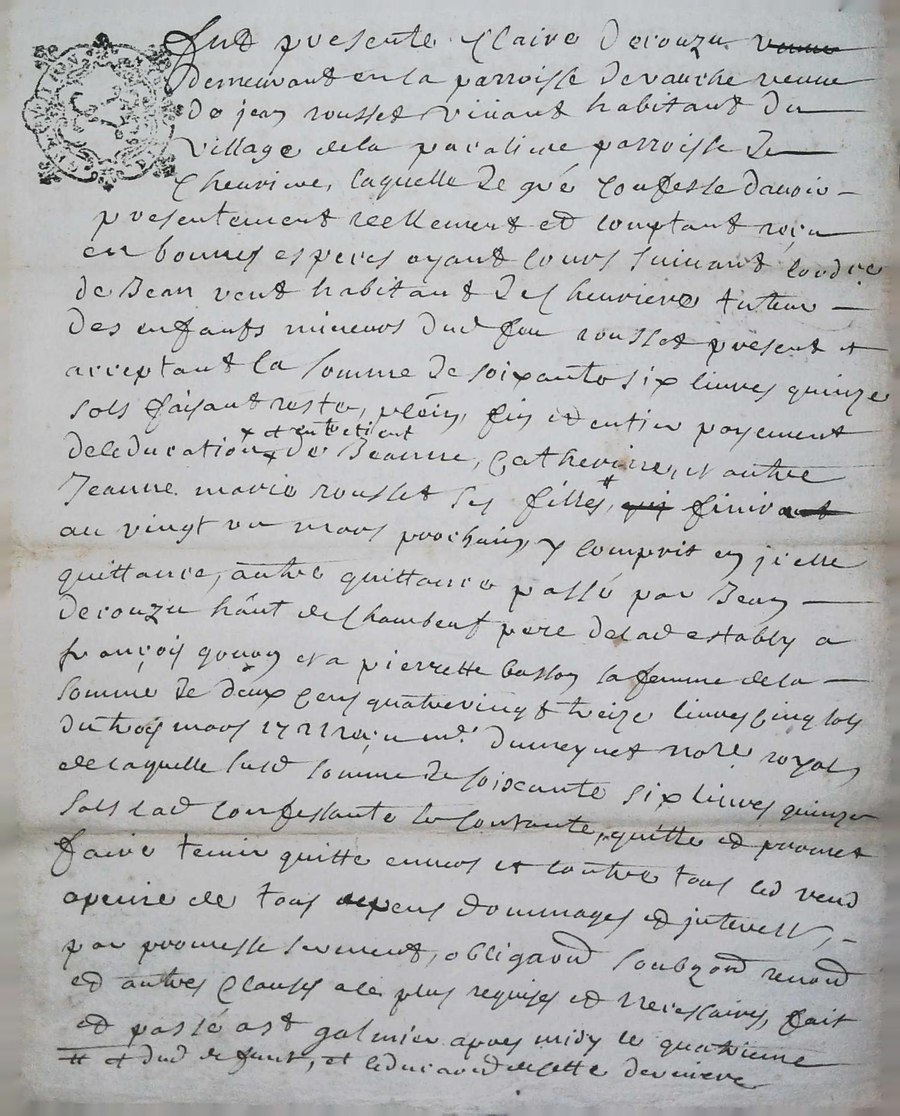 fut presente Claire Decouzu veuve
demeurant en la parroisse de vauche veuve
de jean rousset vivant habitant du
village de la paroisse de
Chevriere, laquelle de gré confesse davoir
presentement reellement et comptant reçu
en bonnes especes ayant cours suivant lordre
de Jean habitant de Chevriere tuteur
des enfants mineurs dud feu rousset present et
acceptant la somme de soixante six livres quinze
sols faisant reste, plein, fin et entier payement
de leducation et entretient de Jeanne, Catherine, et autre
Jeanne marie rousset ses filles, qui finiront
au vingt un mars prochain, y comprit en jcelle
quittance, autre quittance passé par Jean
Decouzu hânt de Chambeuf pere de lad establye a
françois et a pierrette la femme de la
somme de deux cens quatrevingt treize livres cinq sols
du trois mars reçu me. Dumeynet nore. royal,
de laquelle susd somme de soixante six livres quinze
sols lad confessante se contante, quitte et promet
faire tenir quitte envers et contre tous led
a peine de tous depens dommages et interests,
par promesse serment, obligaon soubzon renonon
et autres clauses a ce plus requises et necessaires, fait
et passé a st galmier apres midy le quatrieme
# et dud defunt, et leducaon de cette derniere